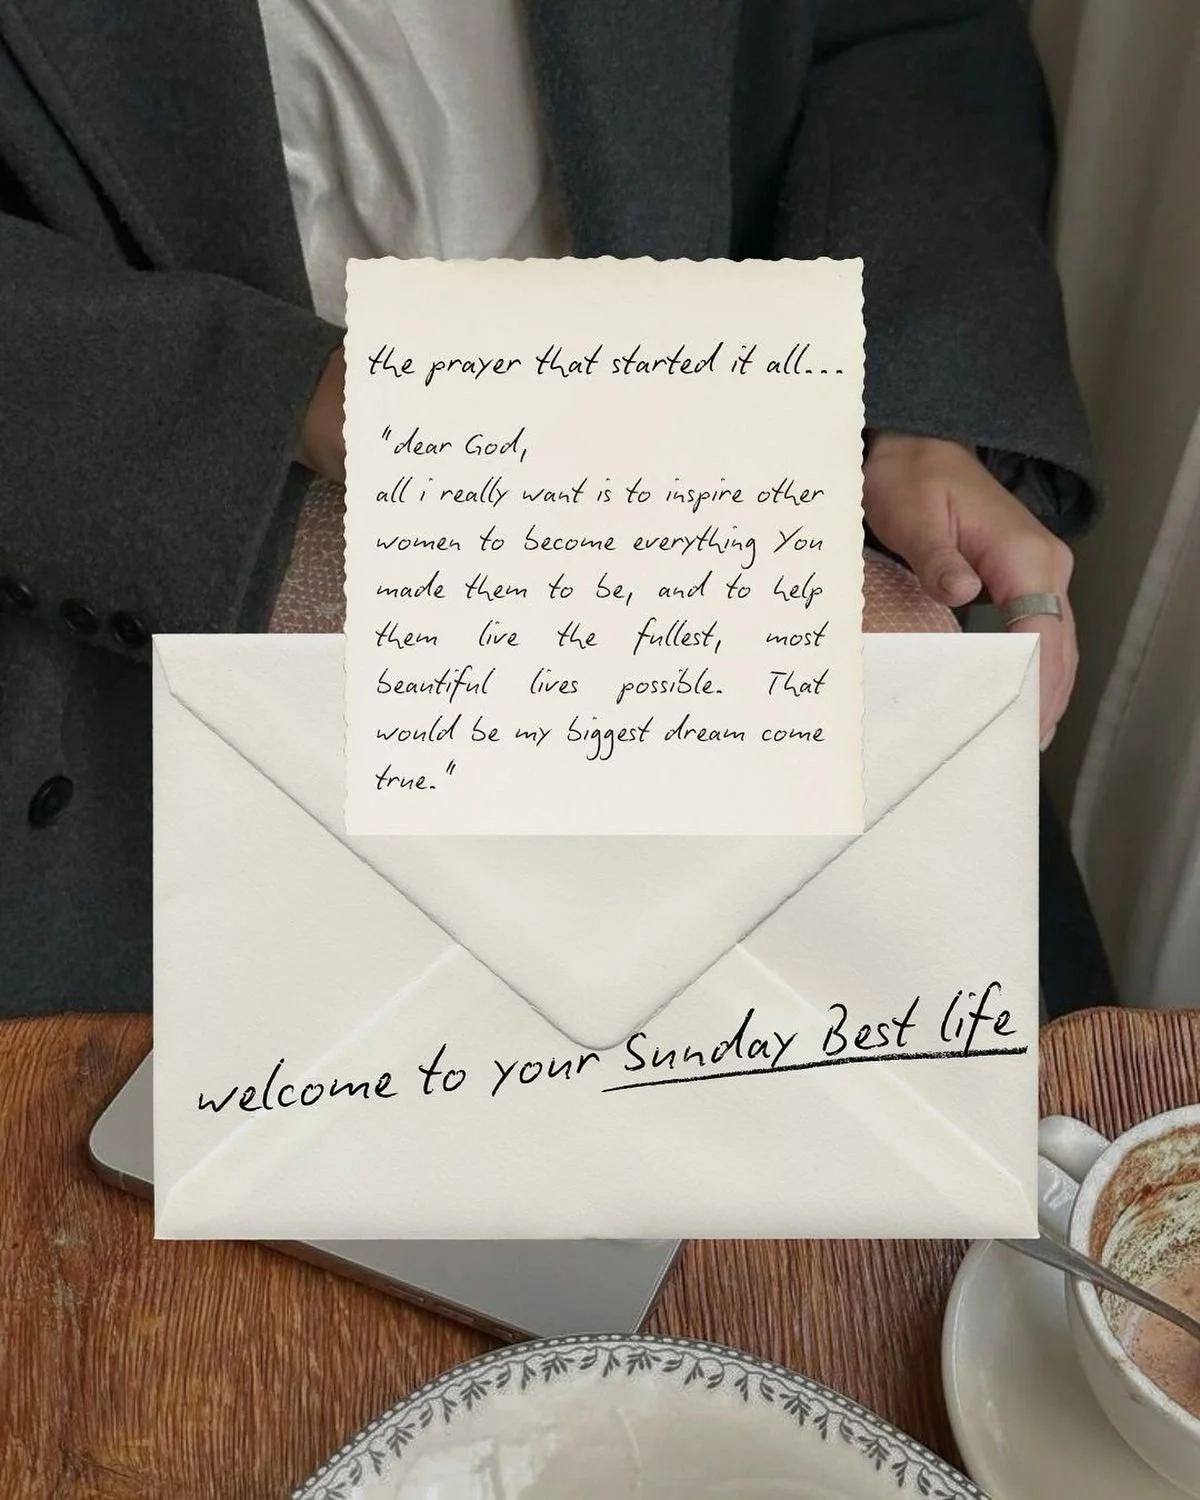 the prayer that started it all...
"dear God,
all i really want is to inspire other
women to become everything You
made them to be, and to help
them live the fullest, most
beautiful lives possible. That
would be my biggest dream come
true."
welcome to your Sunday Best life